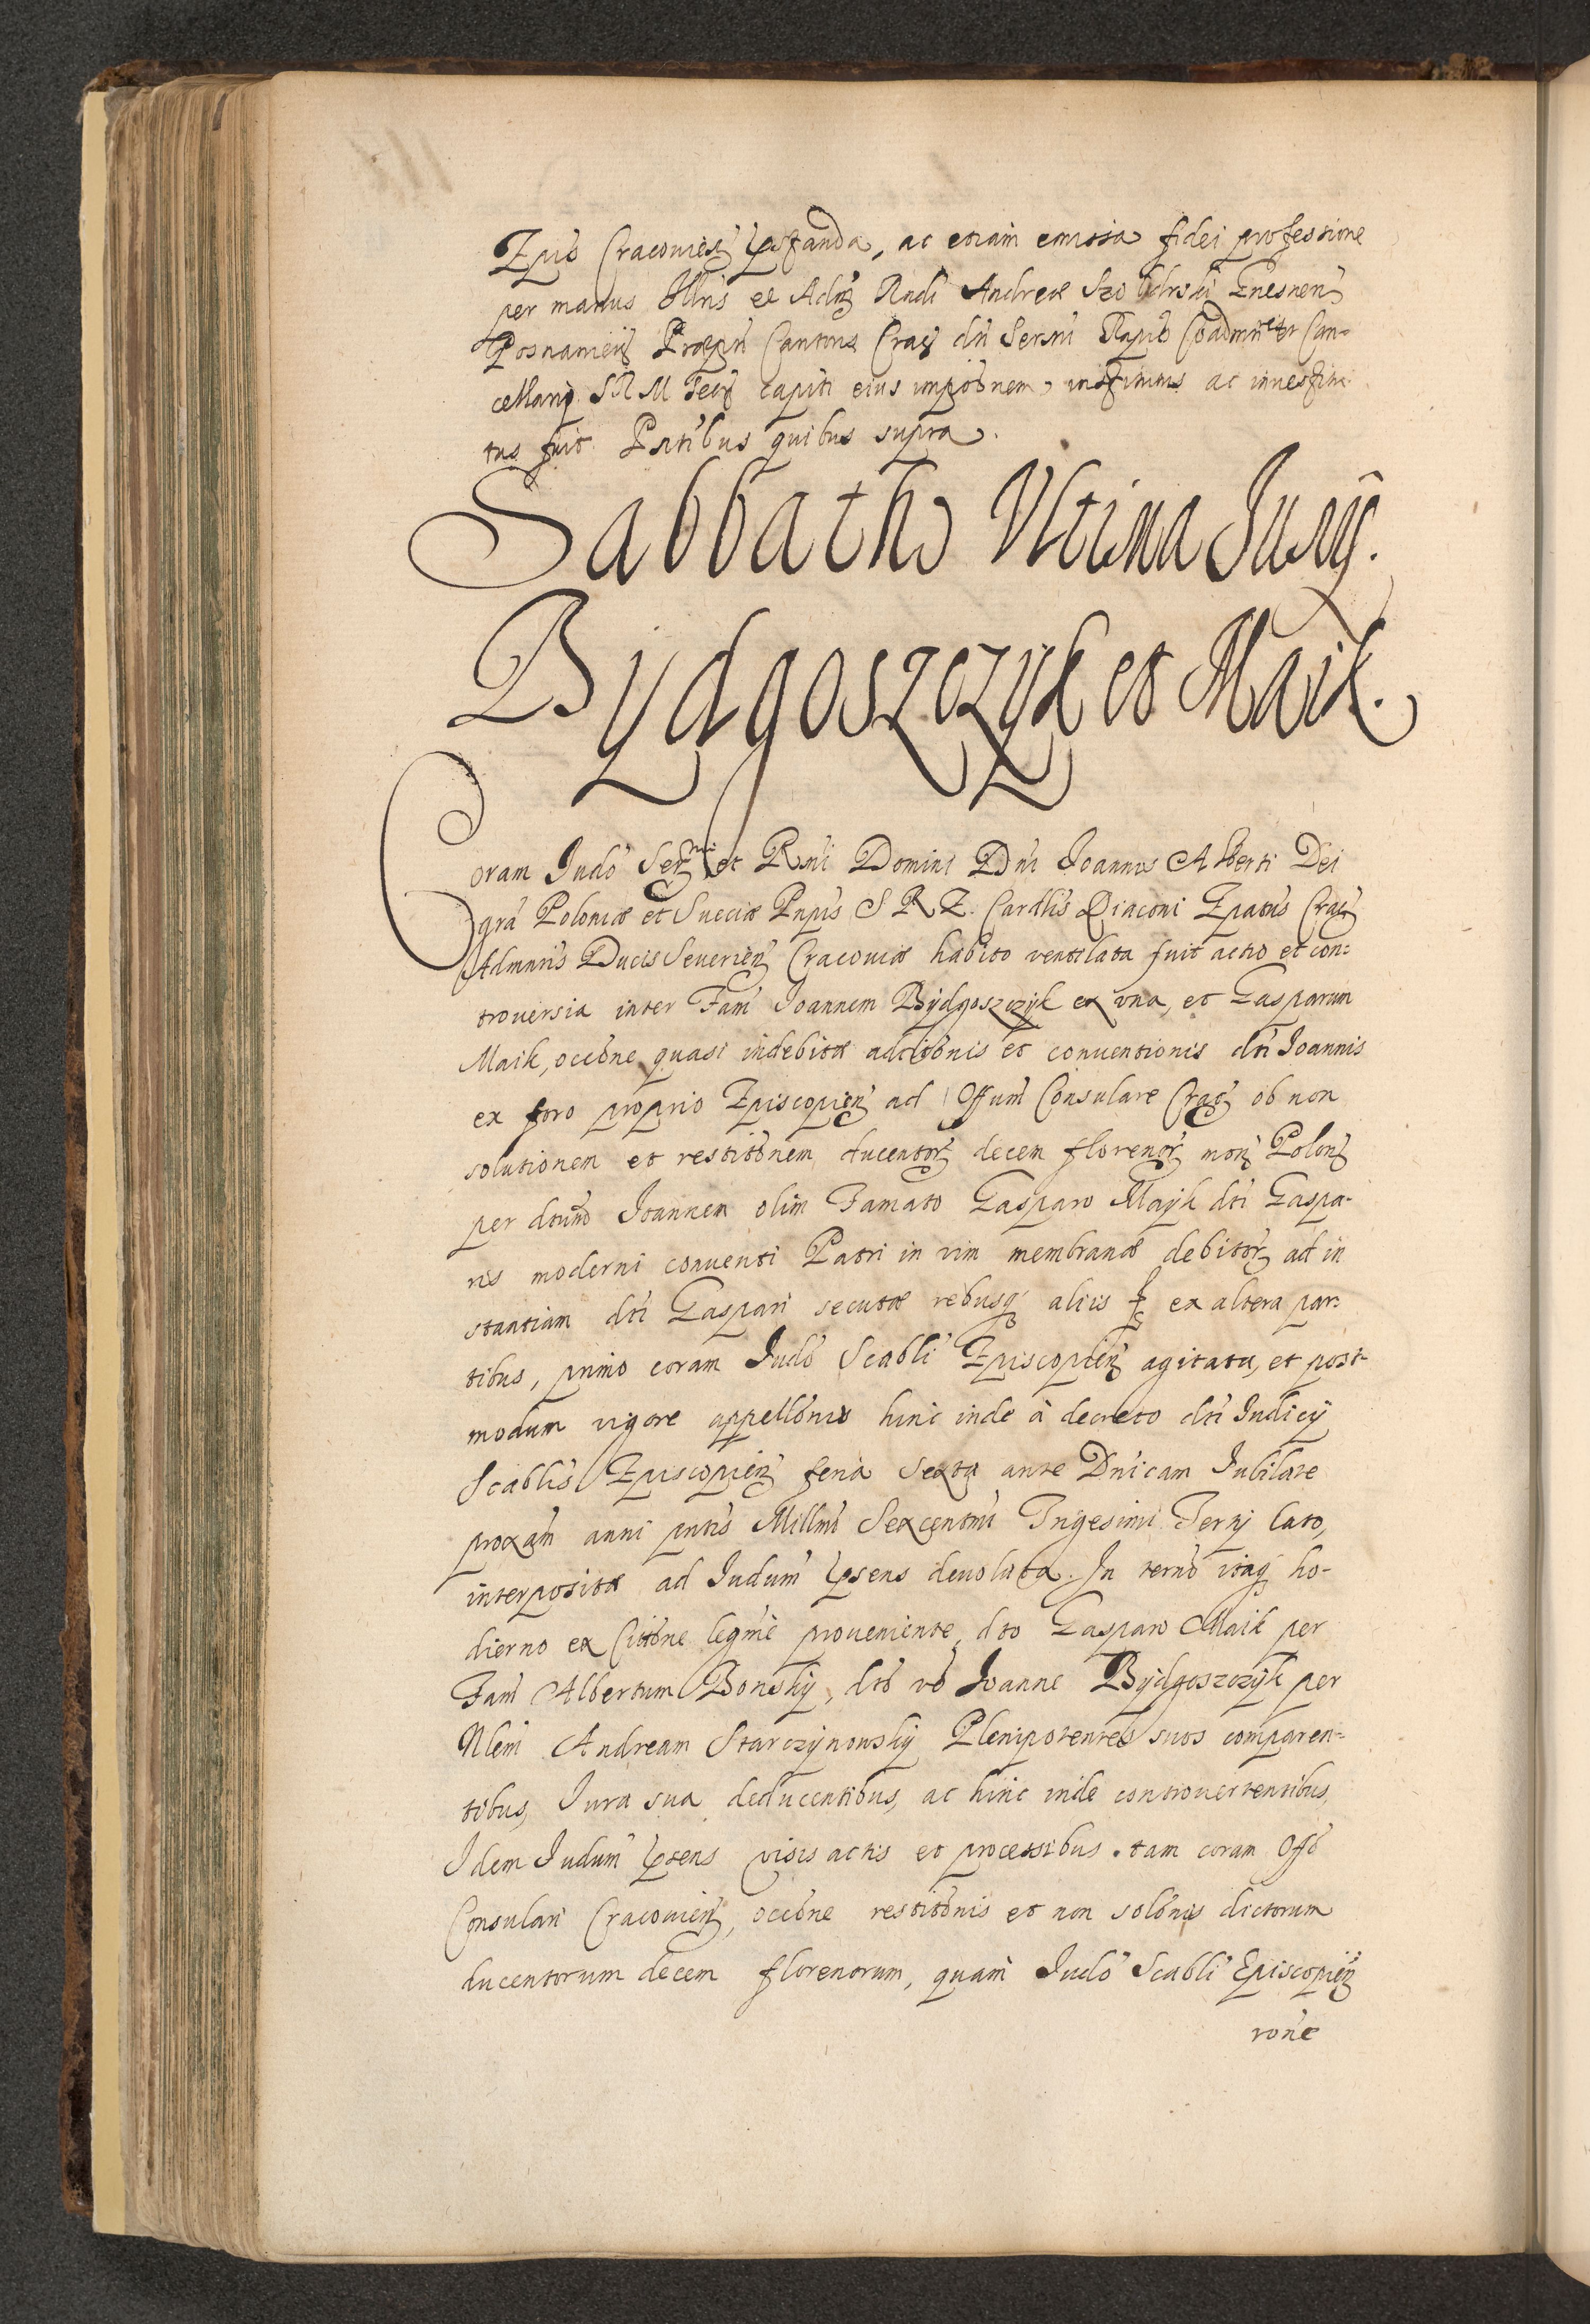 Epūs Cracovień pstanda, ac etiam emissa fidei professione
per manus Illris et Adm Rndi Andreæ Szoldrski Gnesnen
Posnanień Præpti Cantoris Crac dni Sermi Epūs Coadmiratoris Can-
cellarij S R M Secrij capiti eius impōnem, institutus ac investitu-
tus fuit Pntibus quibus supra.
Sabbatho Vltima Iunij.
Bÿdgoszczÿk et Maik.
Coram Iudō Sermi et Rmi Domini Dni Joannis Alberti Dei
gra Poloniæ et Sueciæ Pnpis S R E. Cardlis Diaconi Epatus Crac
Admris Ducis Severień Cracoviæ habito ventilata fuit actio et con-
troversia inter Fam Joannem Bÿdgoszczÿk ex vna, et Gasparum
Maik, occōne quasi indebitæ adcitōnis et conventionis dti Joannis
ex foro proprio Episcopień ad Offum Consulare Crac ob non
solutionem et restitōnem ducentor decem florenor mon Polon
per dtum Joannem olim Famato Gasparo Maÿk dti Gaspa-
ris moderni conventi Patri in vim membranæ debitor ad in
stantiam dti Gaspari secutæ rebusq aliis ex altera par-
tibus, primo coram Iudō Scabli Episcopień agitata, et post-
modum vigore appellōnis hinc inde à decreto dti Iudicÿ
Scablis Episcopień feria Sexta ante Dnicam Iubilate
proxam anni pntis Millmi Sexcentmi Trigesimi Tertij lato,
interpositæ ad Iudum psens devoluta. In termo itaq ho-
dierno ex Citōne legme proveniente, dto Gasparo Maik per
Fam Albertum Bonskÿ, dto vo Joanne Bÿdgoszczÿk per
Nlem Andream Starczÿnowskÿ Plenipotentes suos comparen-
tibus, Iura sua deducentibus, ac hinc inde controvertentibus,
Idem Iudum psens visis actis et processibus tam coram Offō
Consulari Cracovień, occōne restitōnis et non solōnis dictorum
ducentorum decem florenorum, quam Iudō Scabli Episcopień
rōne